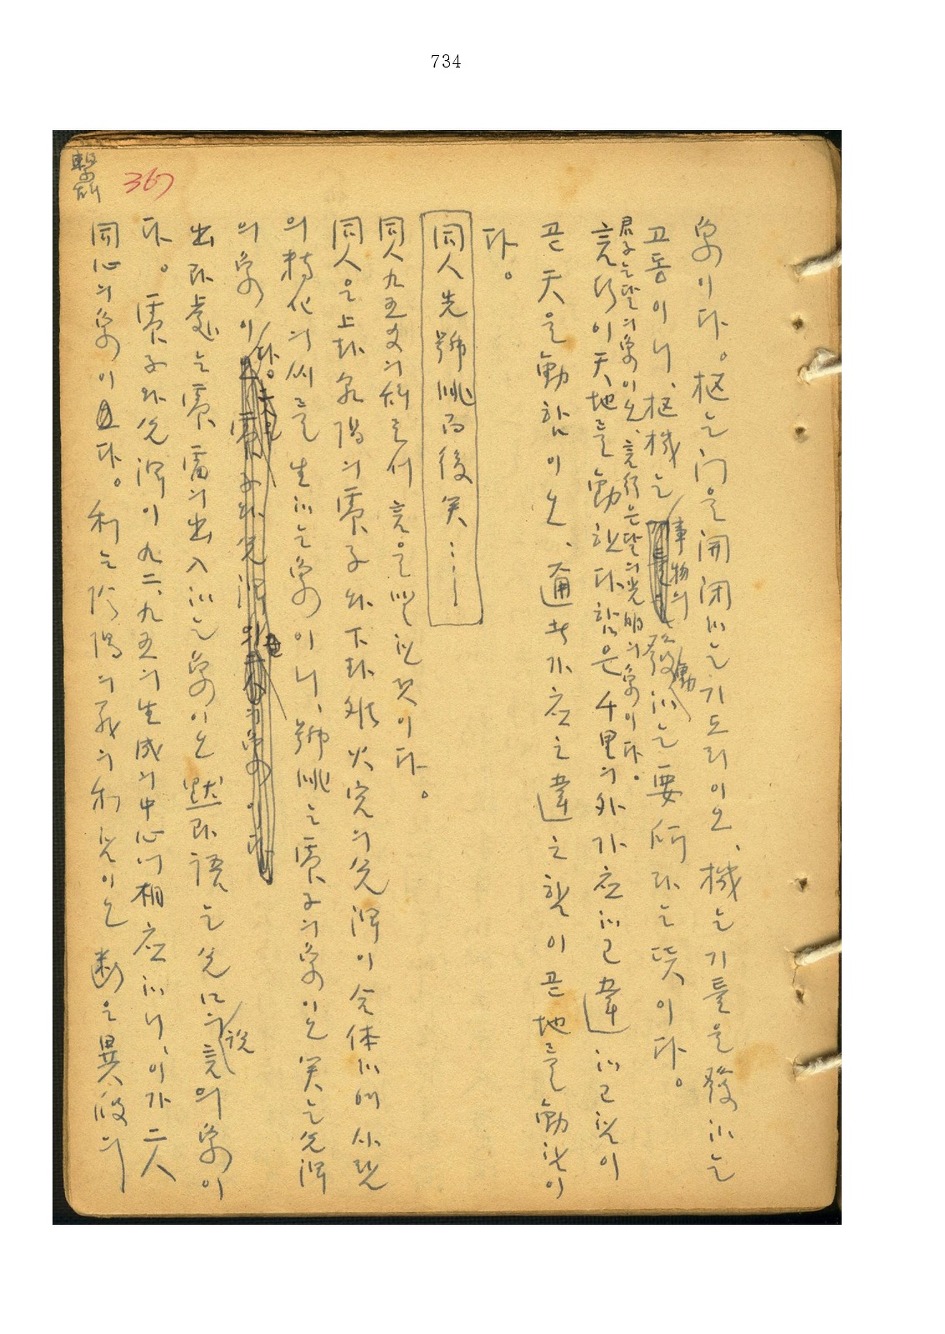 734
繫辭
367
象이다。枢는 门을 開闭하는 기도리이오、機는 기틀을 發하는
고동이니、枢機는 事物의 發動하는 要所라는 뜻이다。
君子는 日의 象이오、言行은 日의 光明의 象이다。
言行이 天地를 動한다 함은 千里의 外가 应하고 違하고 한이
곧 天을 動함이오、邇者가 应之違之함이 곧 地를 動함이
다。
同人先號咷而後笑……
同人九五爻의 辭를 付言을 한 것이다。
同人은 上卦 乾陽의 震子와 下卦 離火宂의 兌澤이 合体하여
의 精化의 씨를 生하는 象이니、號咷는 震子의 象이오 笑는 兌澤
의 象이다。
出과 處는 震雷의 出入하는 象이오 默과 語는 兌口의 言說의 象이
다。震子와 兌澤이 九二、九五의 生成의 中心에 相应하니、이가 二人
同心의 象이다。利는 阴陽의 義의 利 이오 断은 異段의